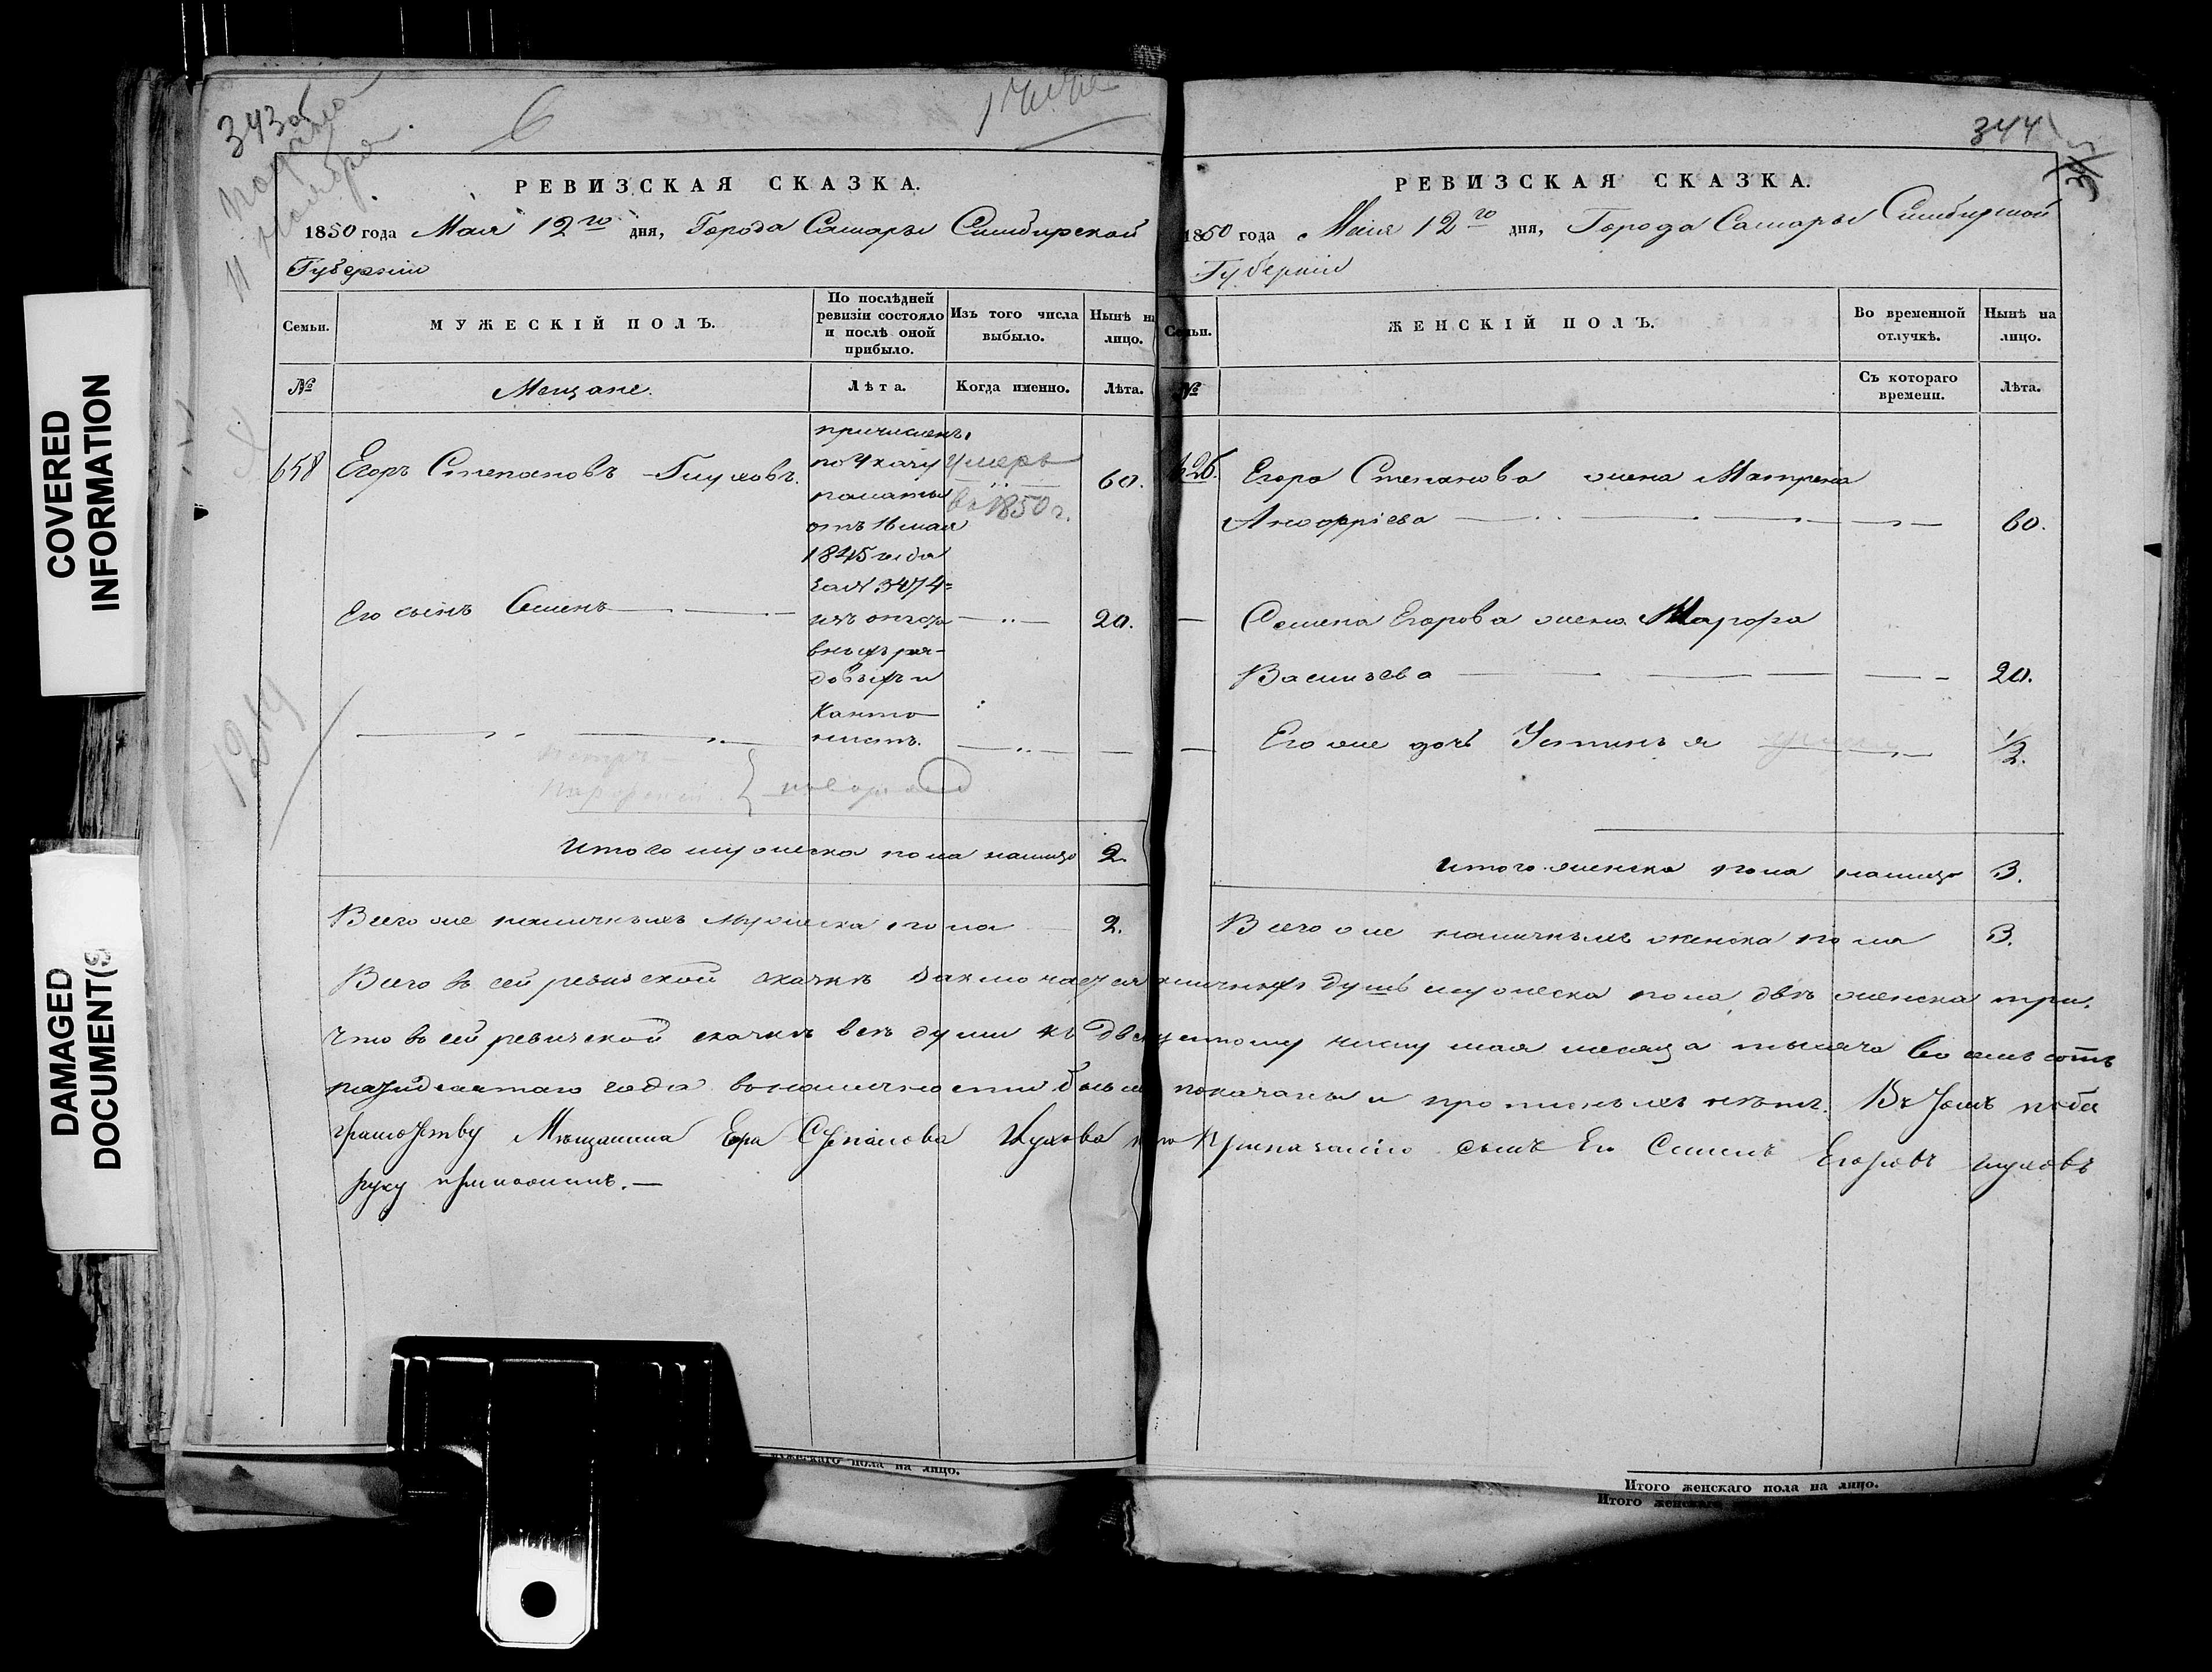 COVERED
INFORMATION
DAMAGED
DOCUMENT(S
343об
Подана
11 ноября
6
РЕВИЗСКАЯ СКАЗКА.
1850 года Маія 12го дня, Города Самары Симбирской
Губерніи
Семьи.
МУЖЕСКІЙ ПОЛЪ.
По послѣдней
ревизіи состояло
и послѣ оной
прибыло.
Изъ того числа
выбыло.
Нынѣ на
лицо.
№
Мещане.
Лѣта.
Когда именно.
Лѣта.
658 Егоръ Степановъ Глуховъ. 60.
причисленъ
по Указу
палаты
отъ 16 мая
1845 года
за № 3474
изъ отста
вныхъ ря-
довыхъ и
Канто
нистъ.
Умеръ
въ 1850 г.
Его сынъ Семенъ 20.
1219
Петръ
Парфеній
Итого мужеска пола налицо 2.
Всего же наличныхъ мужеска пола 2.
344
РЕВИЗСКАЯ СКАЗКА.
1850 года Маія 12го дня, Города Самары Симбирской
Губерніи
Семьи.
ЖЕНСКІЙ ПОЛЪ.
Во временной
отлучкѣ.
Нынѣ на
лицо.
№
Съ котораго
времени.
Лѣта.
Егора Степанова жена Матрена
60.
Семена Егорова жена Марфа
Васильева 20.
Его же дочь Устинья 1/2.
Итого женска пола налицо 3.
Всего же наличныхъ женска пола 3.
Всего въ сей ревизской сказкѣ заключается наличныхъ душъ мужеска пола двѣ женска три.
Что въ сей ревизской сказкѣ всѣ души къ двенадцетому числу мая месяца тысяча восемь сотъ
пятидесятаго года въ наличности были показаны и прописныхъ нѣтъ. Въ томъ по без
грамотству Мещанина Егора Степанова Глухова по его приказанію сынъ Его Семенъ Егоровъ Глуховъ
руку приложилъ.
мужескаго пола на лицо.
Итого женскаго пола на лицо.
Итого женскаго